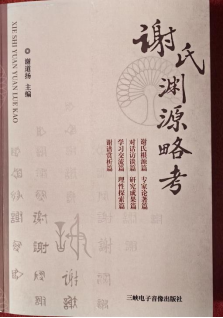 谢氏渊源略考
XIE SHI YUAN YUAN LUE KAO
主编
谢氏根源篇 专家论著篇
对话访谈篇 研究成果篇
学习交流篇 理性探索篇
三峡电子音像出版社